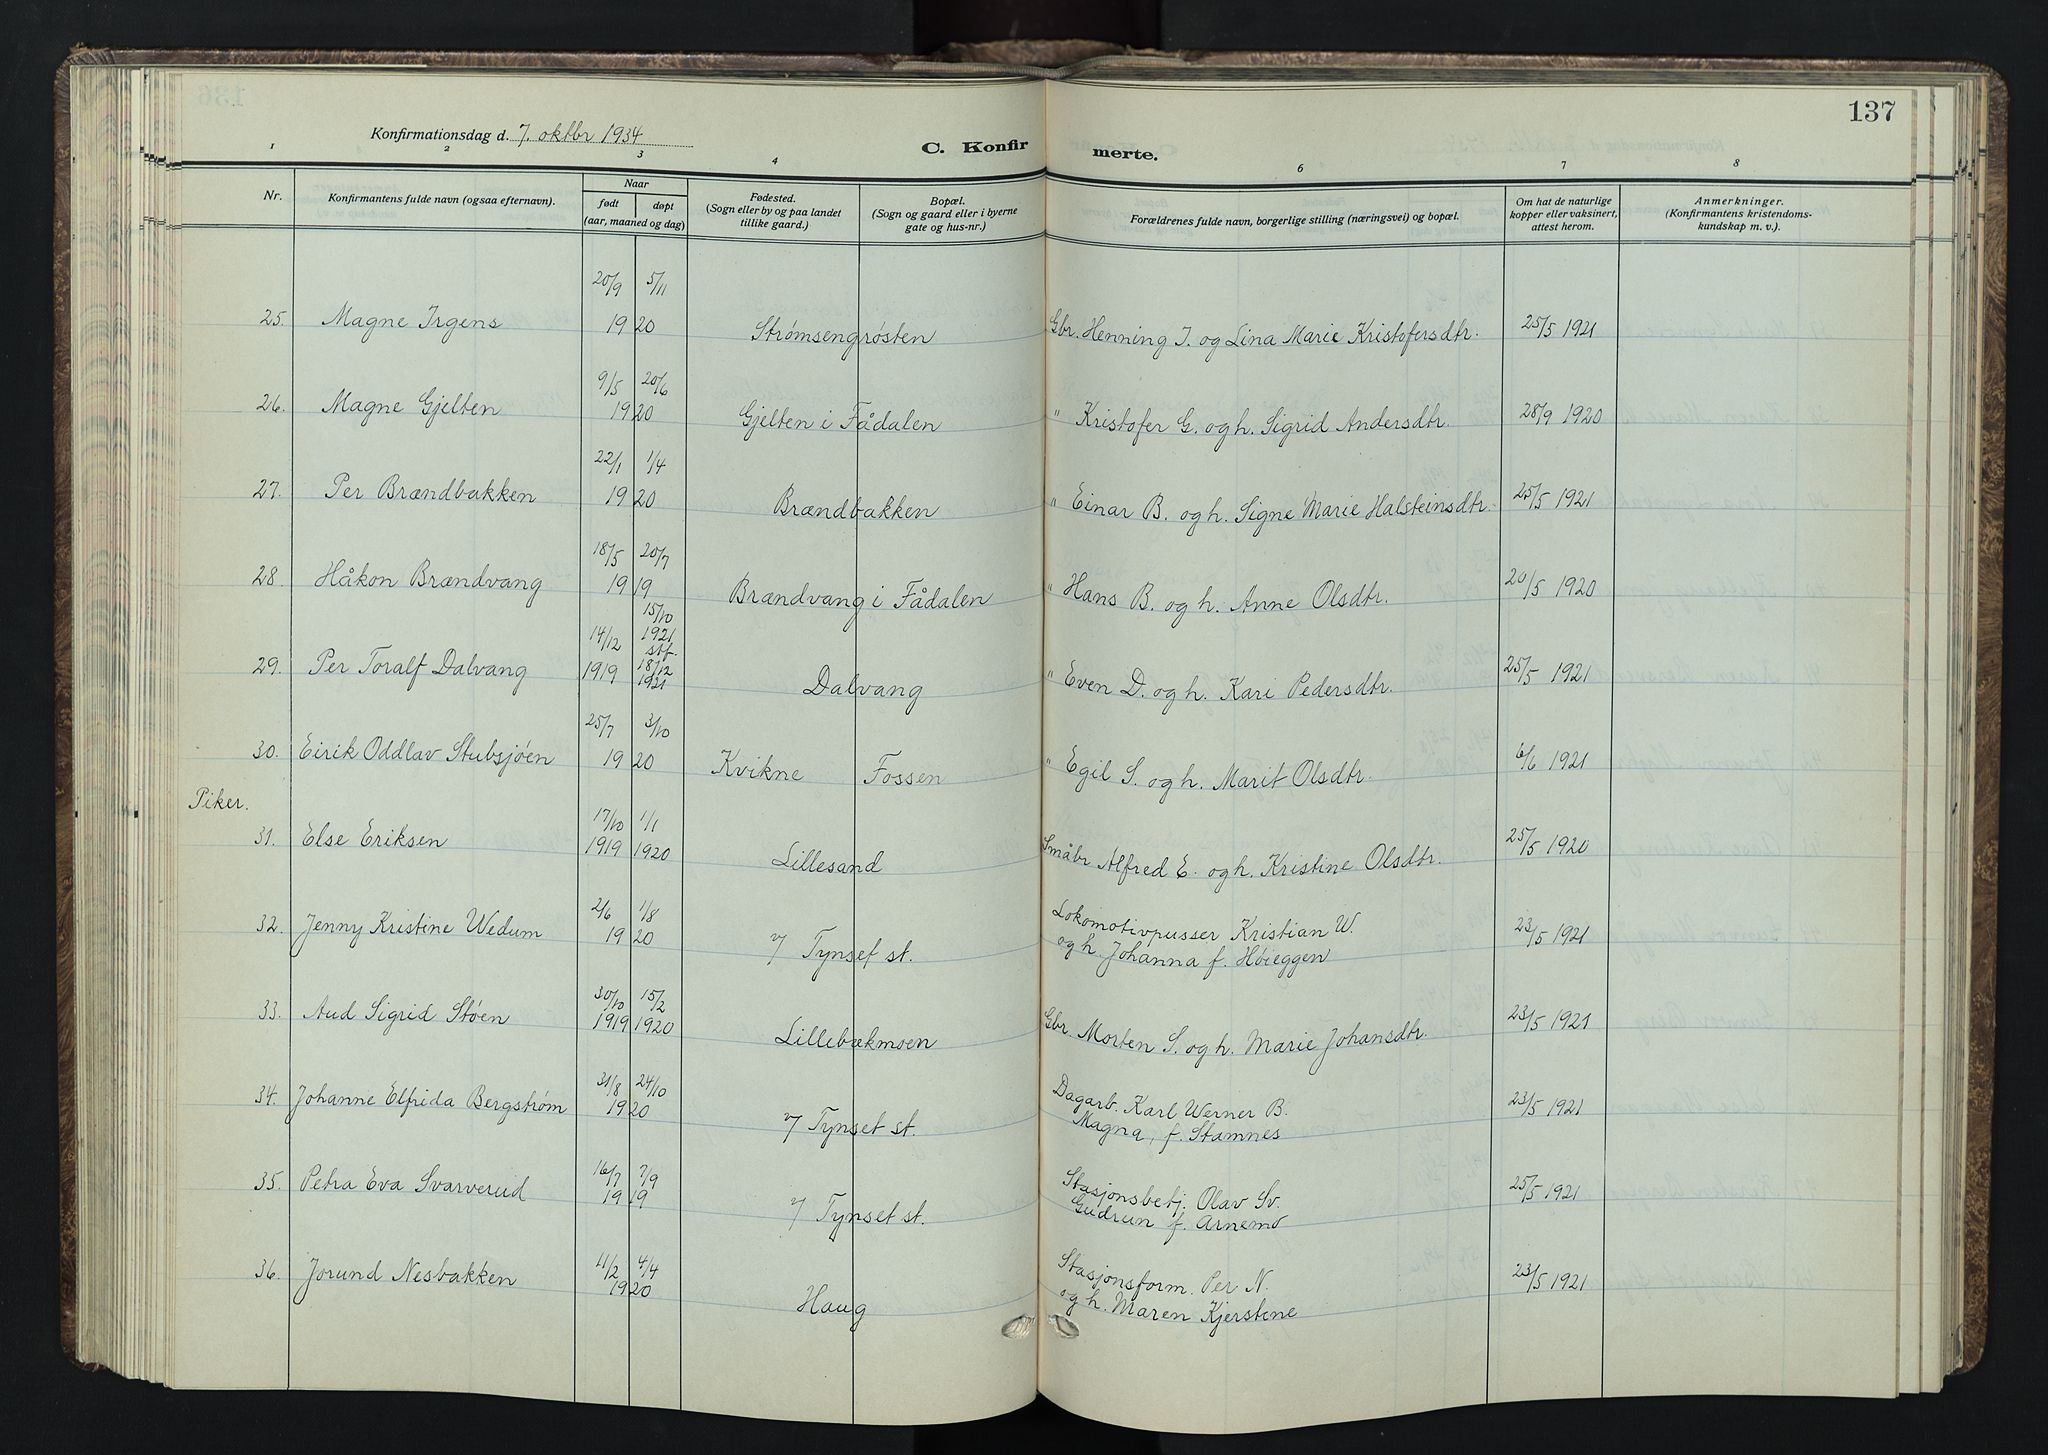 137
Konfirmationsdag d. 7. oktbr 1934
C. Konfirmerte.
1 2 3 4 6 7 8
Nr. Konfirmantens fulde navn (ogsaa efternavn). Naar født døpt (aar, maaned og dag) Fødested. (Sogn eller by og paa landet tillike gaard.) Bopæl. (Sogn og gaard eller i byerne gate og hus-nr.) Forældrenes fulde navn, borgerlige stilling (næringsvei) og bopæl. Om hat de naturlige kopper eller vaksinert, attest herom. Anmerkninger. (Konfirmantens kristendomskundskap m. v.).
25. Magne Irgens 20/9 5/11 1920 Strømsengrøsten Gbr. Henning I. og Lina Marie Kristofersdtr. 25/5 1921
26. Magne Gjelten 9/5 20/6 1920 Gjelten i Fådalen " Kristofer G. og h. Sigrid Andersdtr. 28/9 1920
27. Per Brændbakken 22/1 1/4 1920 Brændbakken " Einar B. og h. Signe Marie Halsteinsdtr. 25/5 1921
28. Håkon Brændvang 18/5 20/7 1919 Brændvang i Fådalen " Hans B. og h. Anne Olsdtr. 20/5 1920
29. Per Toralf Dalvang 14/12 1919 15/10 1921 stf. 18/12 1921 Dalvang " Even D. og h. Kari Pedersdtr. 25/5 1921
30. Eirik Oddlav Stubsjøen 25/7 3/10 1920 Kvikne Fossen " Egil S. og h. Marit Olsdtr. 6/6 1921
Piker.
31. Else Eriksen 17/10 1919 1/1 1920 Lillesand Småbr Alfred E. og h. Kristine Olsdtr. 25/5 1920
32. Jenny Kristine Wedum 2/6 1/8 1920 v/ Tynset st. Lokomotivpusser Kristian W. og h. Johanna f. Høieggen 23/5 1921
33. Aud Sigrid Støen 30/10 1919 15/2 1920 Lillebækmoen Gbr. Morten S. og h. Marie Johansdtr. 23/5 1921
34. Johanne Elfrida Bergstrøm 31/8 24/10 1920 v/ Tynset st. Dagarb. Karl Werner B. Magna, f. Stamnes 23/5 1921
35. Petra Eva Svarverud 16/7 7/9 1919 v/ Tynset st. Stasjonsbetj. Olav Sv. Gudrun f. Arnemo 25/5 1921
36. Jorund Nesbakken 11/2 4/4 1920 Haug Stasjonsform. Per N. og h. Maren Kjerstine 23/5 1921